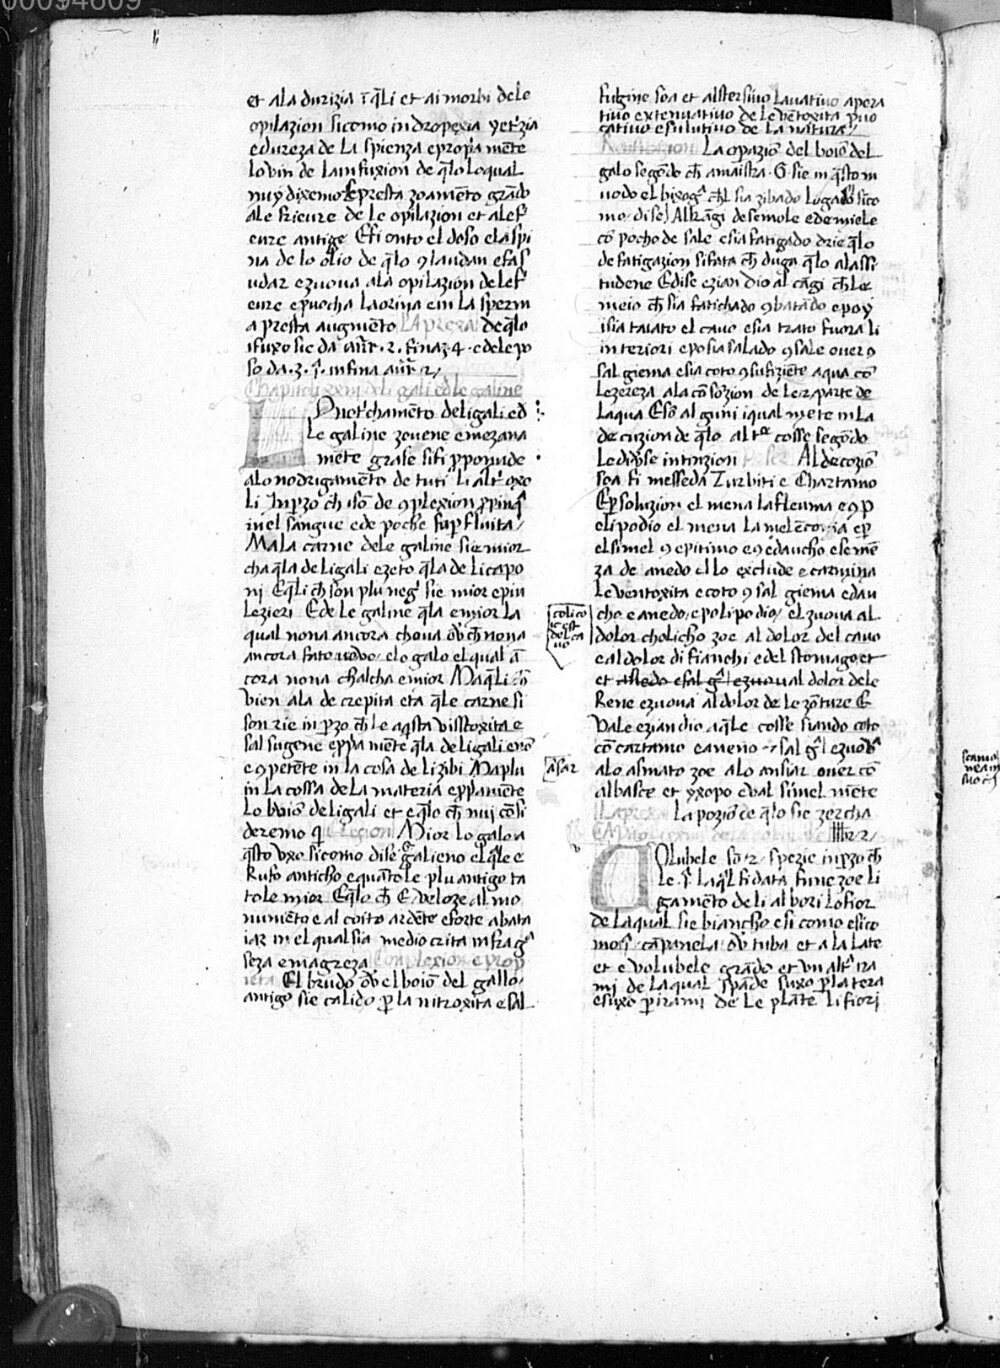 et ala durizia i q̃li et ai morbi dele
opilazion sicomo in dropexia yet'zia
edureza de La spienza e prop'a mẽte
lo vin de La infuxion de q̃lo Loqual
nuy dixemo presta zoamẽto grãdo
ale frieure de le opilazion et ale f
eure antige E si onto el doso ela spi
na de lo olio de q̃lo 9 laudan e fa s
udar e zuova ala opilazion de le f
eure e pvocha La orina e in la sperm
a presta augmẽto La preza de q̃lo
ifuxo sie da aur̃ .2. fina 3 4 . e dele po
so da .3. infina aur̃ 2
Chapitli xviii deli gali ed le galine
Lnot'chamẽto de li gali ed
Le galine zovene e mezana
mẽte grase si fi pponude
a lo nodrigamẽto de tuti li alt' oxo
li Inp'zo ch̃ isõ de 9plexion ppinq'
in el sangue e de poche supfluita
Ma la carne dele galine sie mior
cha q̃la de li gali ezeto q̃la de li capo
ni E q̃li ch̃ son plu neg' sie mior e piu
lezieri E de le galine q̃la e mior La
qual nona ancora chova ov̉ ch̃ nona
ancora fato vovo elo galo el qual ã
cora nona chalcha e mior Ma q̃li cõ
vien ala de crepita eta q̃le carne si
son rie in p'zo ch̃ le aq̃sta visscoxita e
salsugene e ppa mẽte q̃la de li gali ено
e 9petẽte in la cosa de li zibi Ma plu
in la cossa de La materia e ppamẽte
Lo boiõ de li gali et e q̃lo ch̃ nui cõsi
deremo q̃ Elezion Mior lo galo a
q̃sto vxo sicomo dise galieno el q̃le e
Rufo anticho e quãto le plu antigo ta
to le mior E q̃lo ch̃ e veloze al mo
numẽto e al coito ardẽte e forte a bata
iar in el qual sia medio crita in frag'
seza e magreza Complexion e prop
ieta El brudo ov̉ el boiõ del gallo
antigo sie calido p la nitroxita e sal
fulgine soa et alstersivo Lavativo apera
tivo extenuativo de le vẽtoxita pvo
cativo e solutivo de la natura
La opazio del boiõ del
galo segõdo ch̃ amaistra .G. sie in q̃sto m
vodo el bixog' ch̃ l sia zibado Lo galo sico
mo dise Alkãgi de semole e de miele
cõ pocho de sale e sia fatigado drie q̃lo
de fatigazion sifata ch̃ duga q̃lo a lassi
tudene E dise ezian dio al cãgi ch̃ l e
meio ch̃ sia fatichado 9batãdo e poy
i sia taiato el cavo e sia trato fuora li
interiori e po sia salado 9sale over 9
sal giema e sia coto 9sufiziẽte aqua cõ
lezereza a la cõsozion de le parte de
laqua E so alguni i qual mete in La
de cozion de q̃lo alt'e cosse segõdo
Le div̉se intenzion Al decozio
soa fi messeda Turbiti e Chartamo
E p soluzion el mena la fleuma e 9 p
elipodio el mena la melẽconia e p
el simel 9 epitimo e 9 e daucho e semẽ
za de anedo ello exclude e carmina
Le ventoxita e coto 9 sal giema e dau
cho e anedo e polipodio el zuova al
dolor cholicho zoe al dolor del cavo
e al dolor di fianchi e del stomago et
et al dolor dele
Rene ezuova al dolor de le zõture E
vale ezian dio a q̃le cosse siando coto
cõ cartamo e aneno 7 sal g' l ezuov̉
a lo asmato zoe a lo ansiar over cõ
albaste et yxopo e val simelmẽte
La preza La pozio de q̃lo sie zercha
2
Volubele so 2 spezie inp'zo ch̃
Le La q̃l fi data fune zoe li
gamẽto de li albori lo fior
de laqual sie biancho e si como e sico
mo cãpanela ov̉ tuba et a la late
et e volubele grãdo et vn alt' ra
mi de la qual spãde suxo p la tera
e suxo p i rami de le plãte li fiori
colico
ic est
dol ca
vo
asar